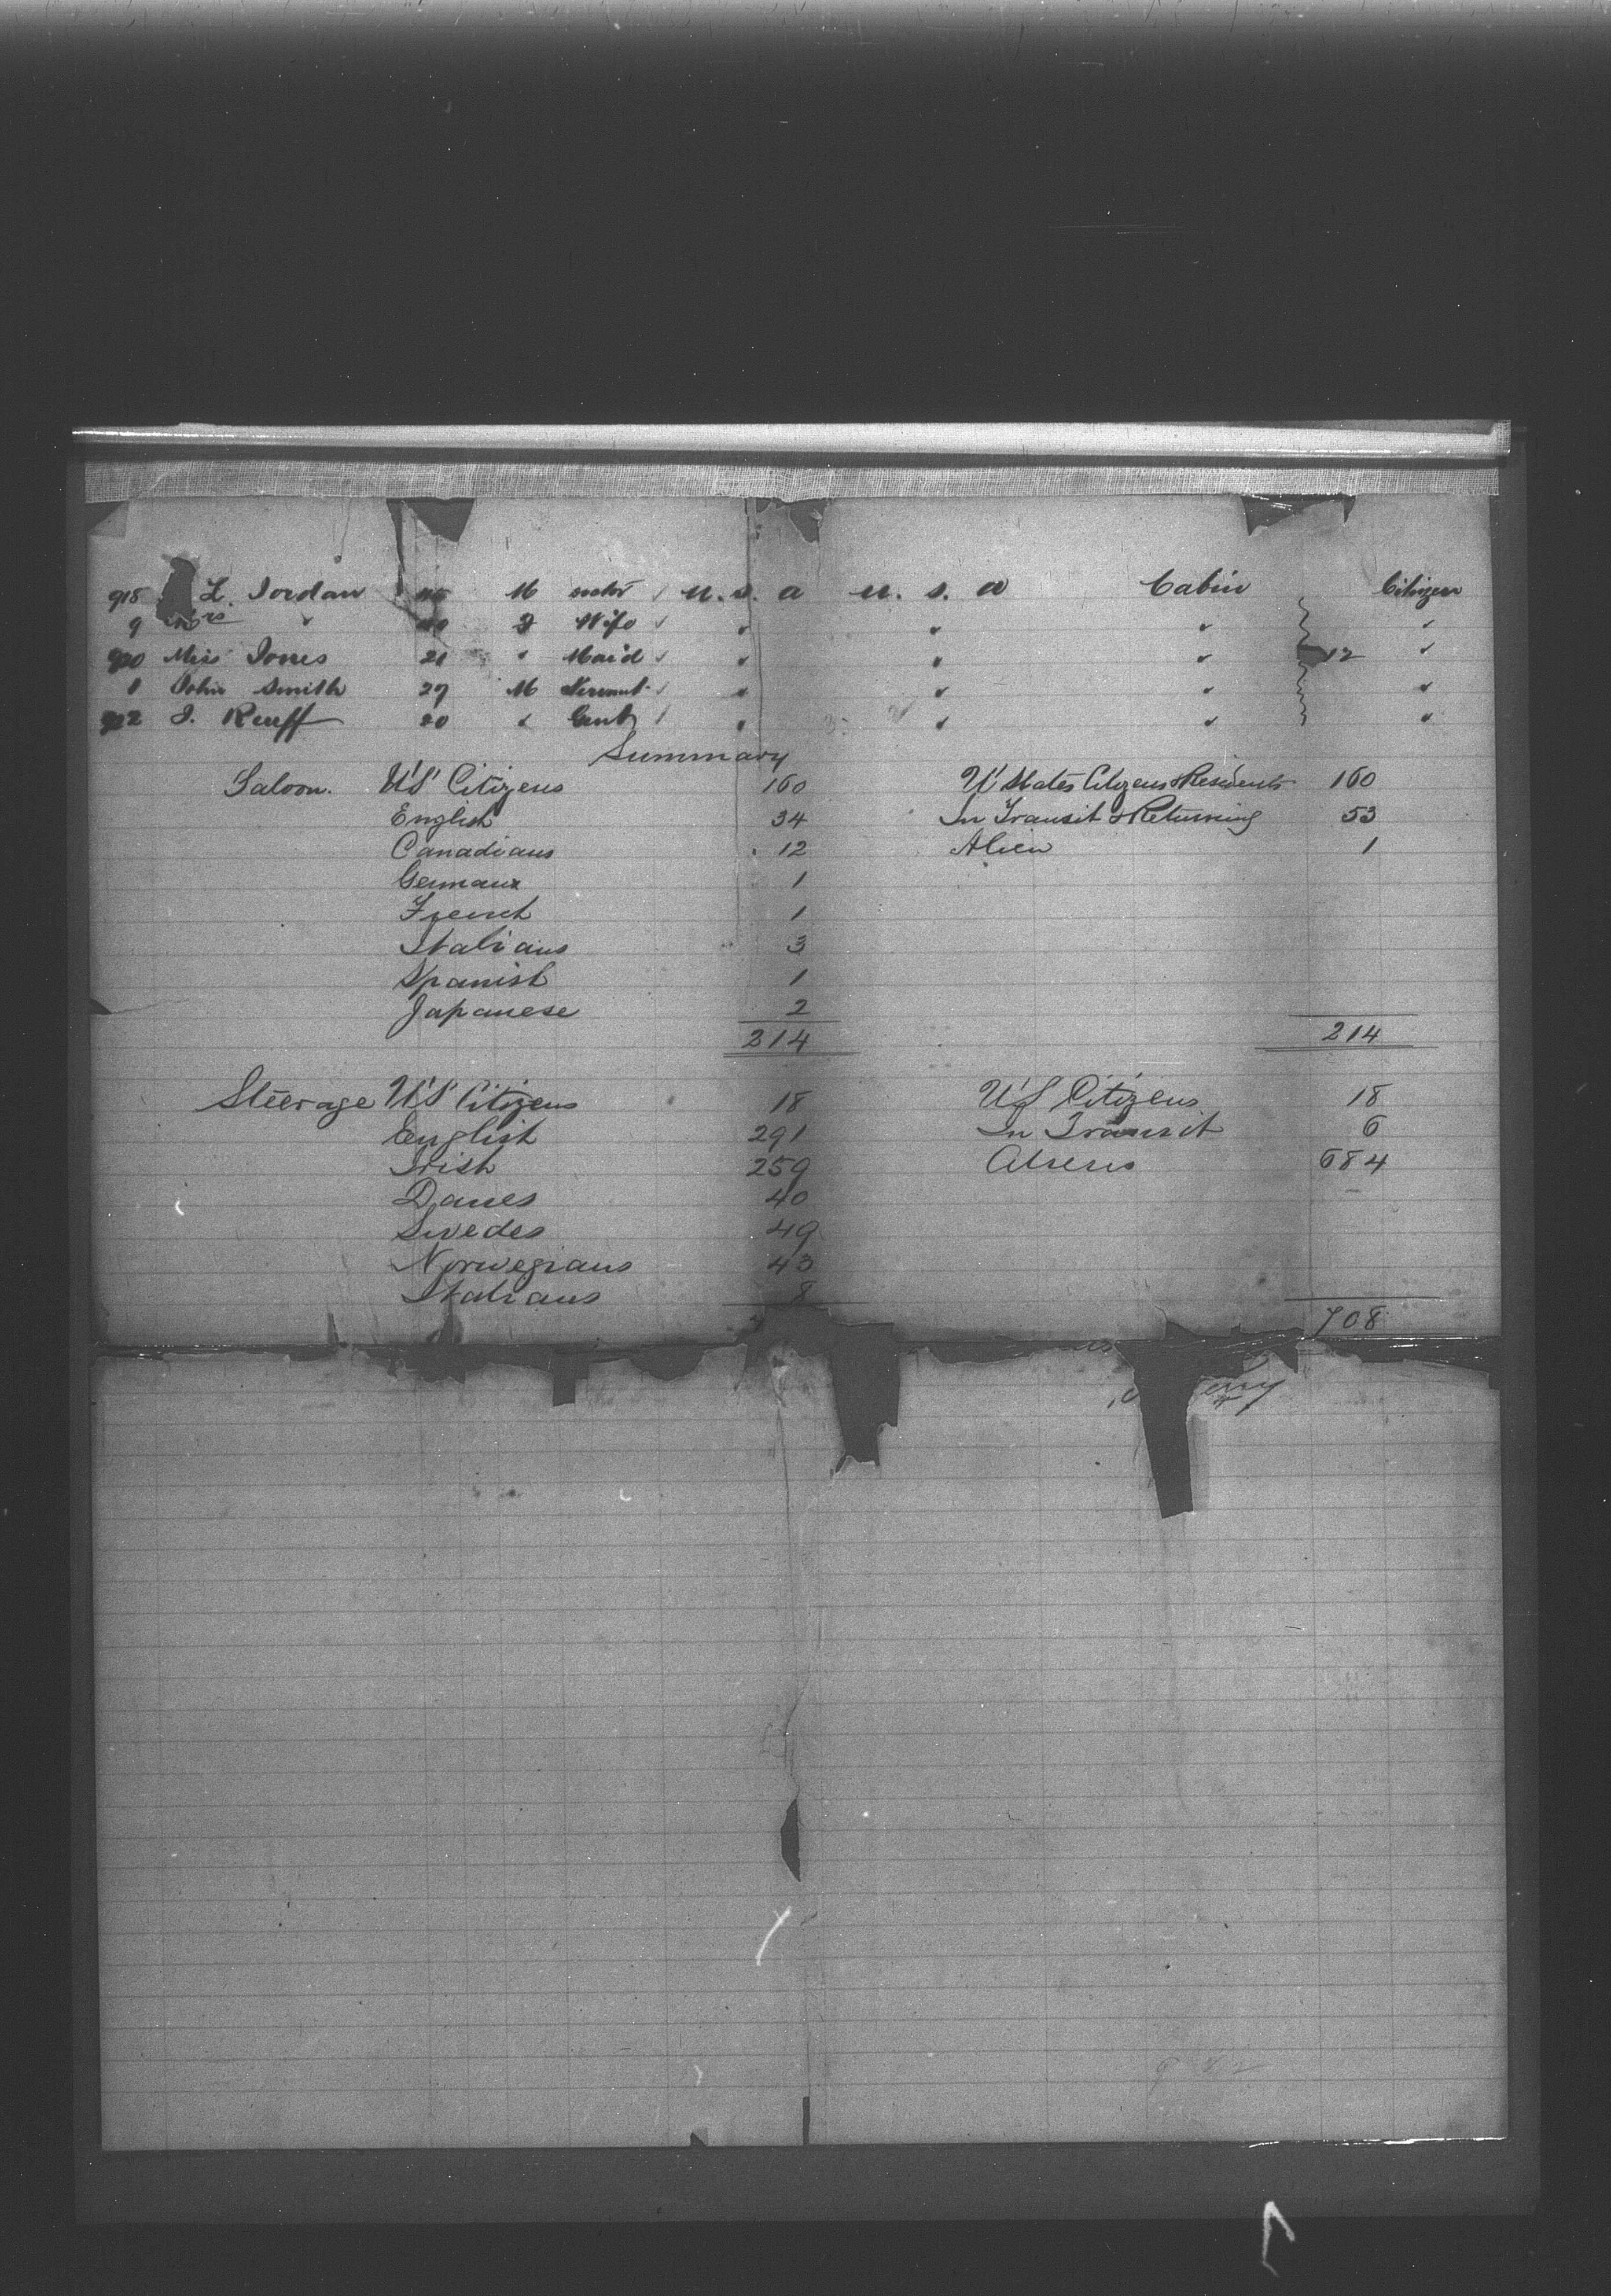 918 L. Jordan M U. S. A U. S. A Cabin Citizen
9 Mrs " 40 F Wife " " " "
920 Miss Jones 21 " Maid " " " 12 "
1 John Smith 29 M Servant " " " "
922 J. Ruff 20 " Gent " " " "
Summary
Saloon. U'S' Citizens 160 U' States Citizens & Residents 160
English 34 In Transit & Returning 53
Canadians 12 Alien 1
Germans 1
French 1
Italians 3
Spanish 1
Japanese 2
214 214
Steerage U'S' Citizens 18 U'S Citizens 18
English 291 In Transit 6
Irish 259 Aliens 684
Danes 40
Swedes 49
Norwegians 43
Italians 8
708